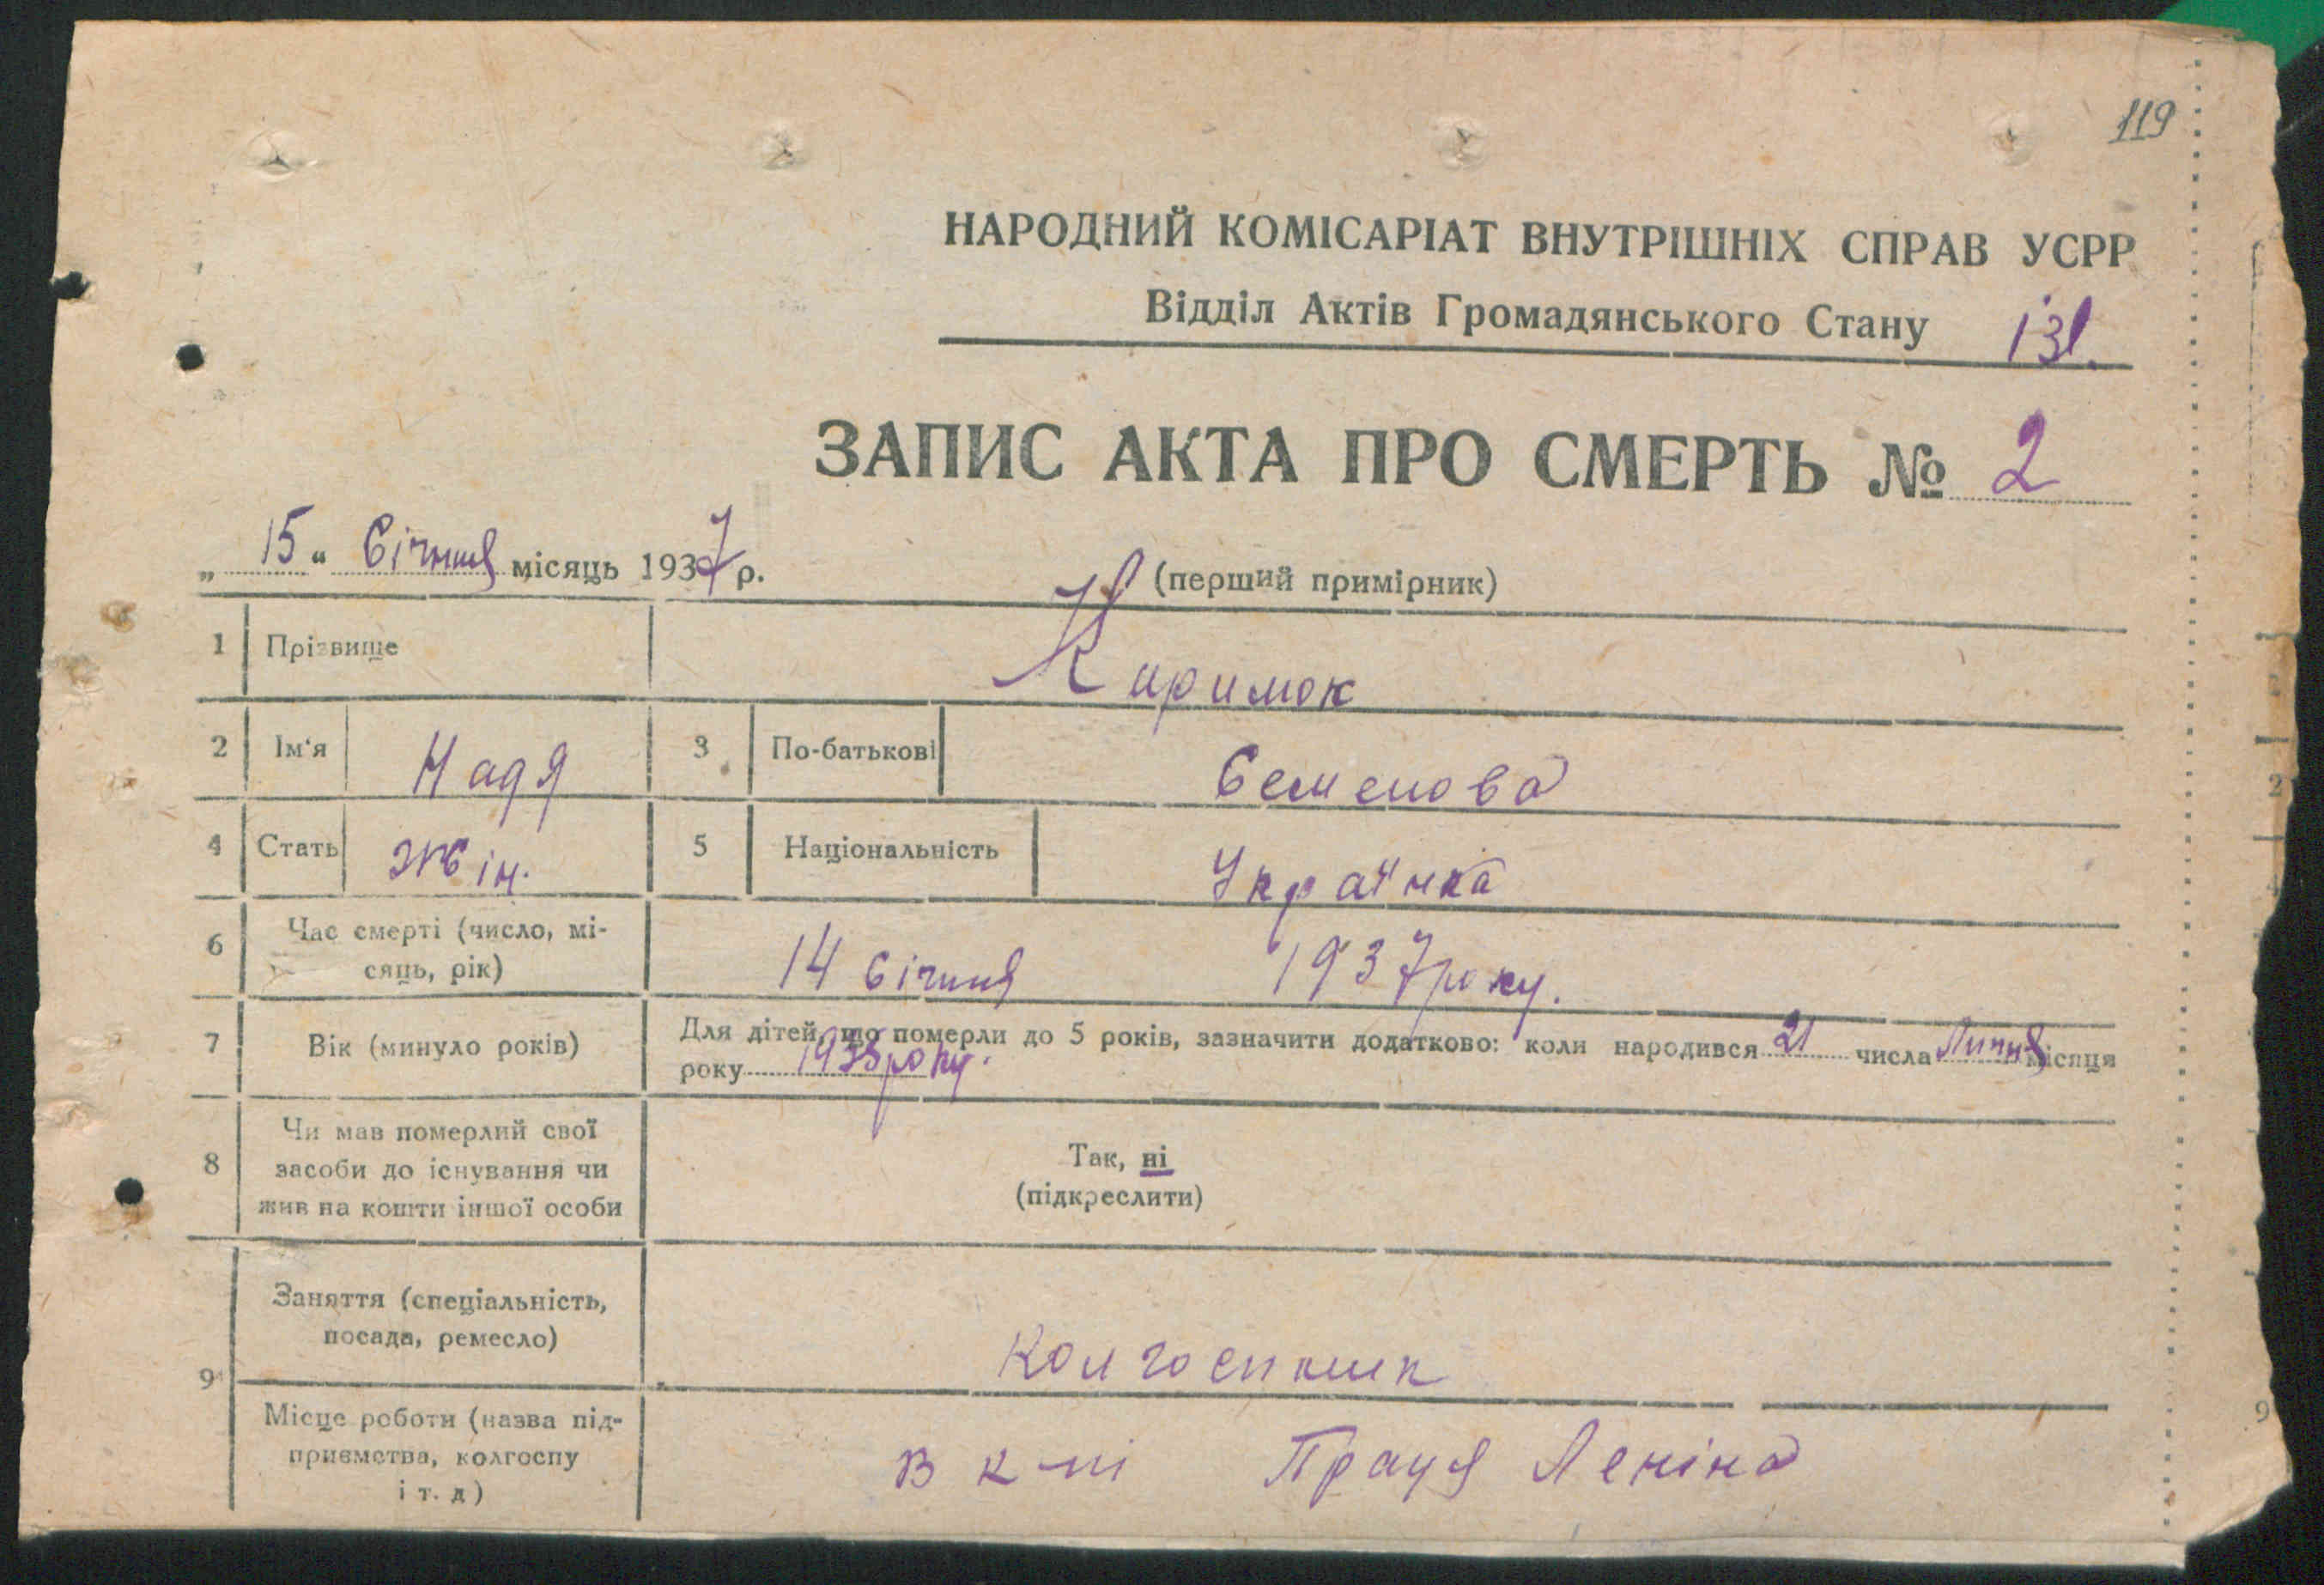 119
НАРОДНИЙ КОМІСАРІАТ ВНУТРІШНІХ СПРАВ УСРР
Відділ Актів Громадянського Стану 131.
ЗАПИС АКТА ПРО СМЕРТЬ № 2
„ 15 “ Січння місяць 1937 р. (перший примірник)
1 Прізвище Киримок
2 Ім'я Надя 3 По-батькові Семенова
4 Стать Жін. 5 Національність Українка
6 Час смерті (число, мі-
сяць, рік) 14 січння 1937 року.
7 Вік (минуло років) Для дітей, що померли до 5 років, зазначити додатково: коли народився 21 числа Липня місяця
року 1935 року.
8 Чи мав померлий свої
засоби до існування чи
жив на кошти іншої особи
Так, ні
(підкреслити)
9 Заняття (спеціальність,
посада, ремесло) Колгоспник
Місце роботи (назва під-
приємства, колгоспу
і т. д) В к-пі Праця Леніна
2
9